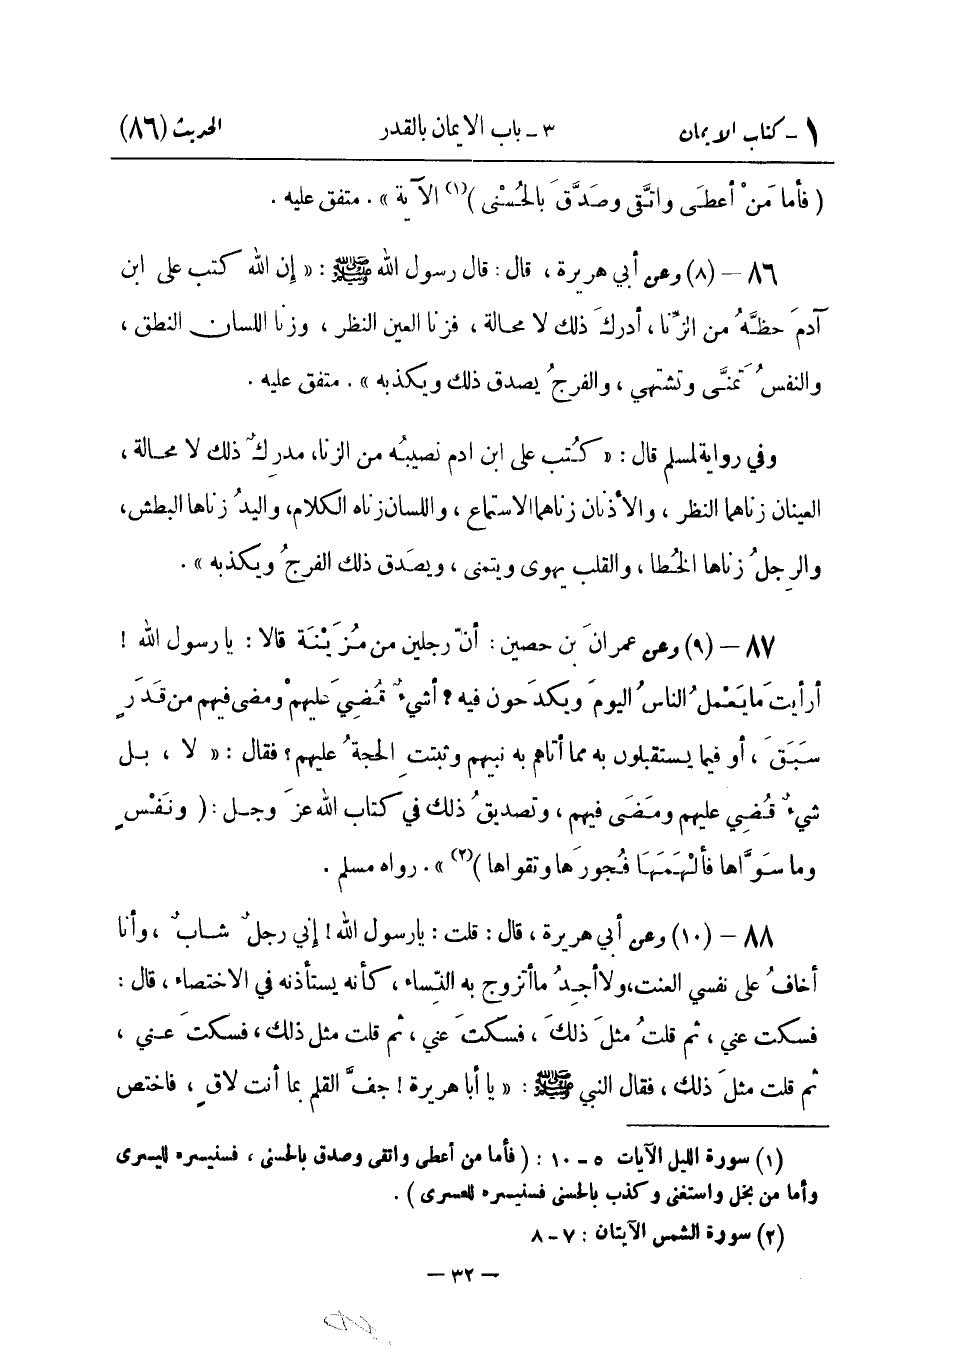 ١ - كتاب الايمان ٣ - باب الايمان بالقدر الحديث (٨٦)
( فأما مَنْ أعطَى واتَّقى وصَدَّقَ بالحُسْنى )(١) الآية » . متفق عليه .
٨٦ – (٨) وعن أبي هريرة ، قال : قال رسول الله ﷺ : « إن الله كتب على ابن
آدمَ حظَّهُ من الزِّنا ، أدركَ ذلك لا محالة ، فزنا العين النظر ، وزنا اللسان النطق ،
والنفسُ تمنَّى وتشتهي ، والفرجُ يصدق ذلك ويكذبه » . متفق عليه .
وفي رواية لمسلم قال : « كُتب على ابن ادم نصيبُه من الزنا، مدركٌ ذلك لا محالة ،
العينان زناهما النظر ، والأذنان زناهما الاستماع ، واللسان زناه الكلام، واليدُ زناها البطش،
والرِجلُ زناها الخُطا ، والقلب يهوى ويتمنى ، ويصَدق ذلك الفرجُ ويكذبه » .
٨٧ – (٩) وعن عمرانَ بن حصين : أنّ رجلين من مُزَيْنَة قالا : يا رسول الله !
أرأيتَ ما يَعْملُ الناسُ اليومَ ويكدَحون فيه ؟ أشيءٌ قُضيَ عليهمْ ومضى فيهم من قَدَرٍ
سَبَقَ ، أو فيما يستقبلون به مما أتاهم به نبيهم وثبتتِ الحجةُ عليهم ؟ فقال : « لا ، بل
شيءٌ قُضي عليهم ومَضَى فيهم ، وتصديقُ ذلك في كتاب الله عزَ وجل : ( ونَفْسٍ
وما سوَّاها فألْهَمَهَا فُجورَها وتقواها )(٢) » . رواه مسلم .
٨٨ – (١٠) وعن أبي هريرة ، قال : قلت : يارسول الله ! إني رجلٌ شابٌ ، وأنا
أخافُ على نفسي العنت، ولا أجدُ ما أتزوج به النّساء ، كأنه يستأذنه في الاختصاء ، قال :
فسكت عني ، ثم قلتُ مثلَ ذلكَ ، فسكتَ عني ، ثم قلت مثل ذلك ، فسكتَ عني ،
ثم قلت مثلَ ذلك ، فقال النبي ﷺ : « يا أبا هريرة ! جفَّ القلم بما أنت لاقٍ ، فاختص
(١) سورة الليل الآيات ٥ - ١٠ : ( فأما من أعطى واتقى وصدق بالحسنى ، فسنيسره لليسرى
وأما من بخل واستغنى وكذب بالحسنى فسنيسره للعسرى ) .
(٢) سورة الشمس الآيتان : ٧ - ٨
– ٣٢ –